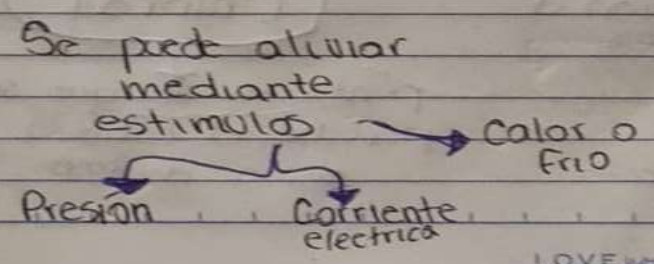 Se puede aliviar
mediante
estimulos
Calor o
Frio
Presión
Corriente
electrica
LOVE